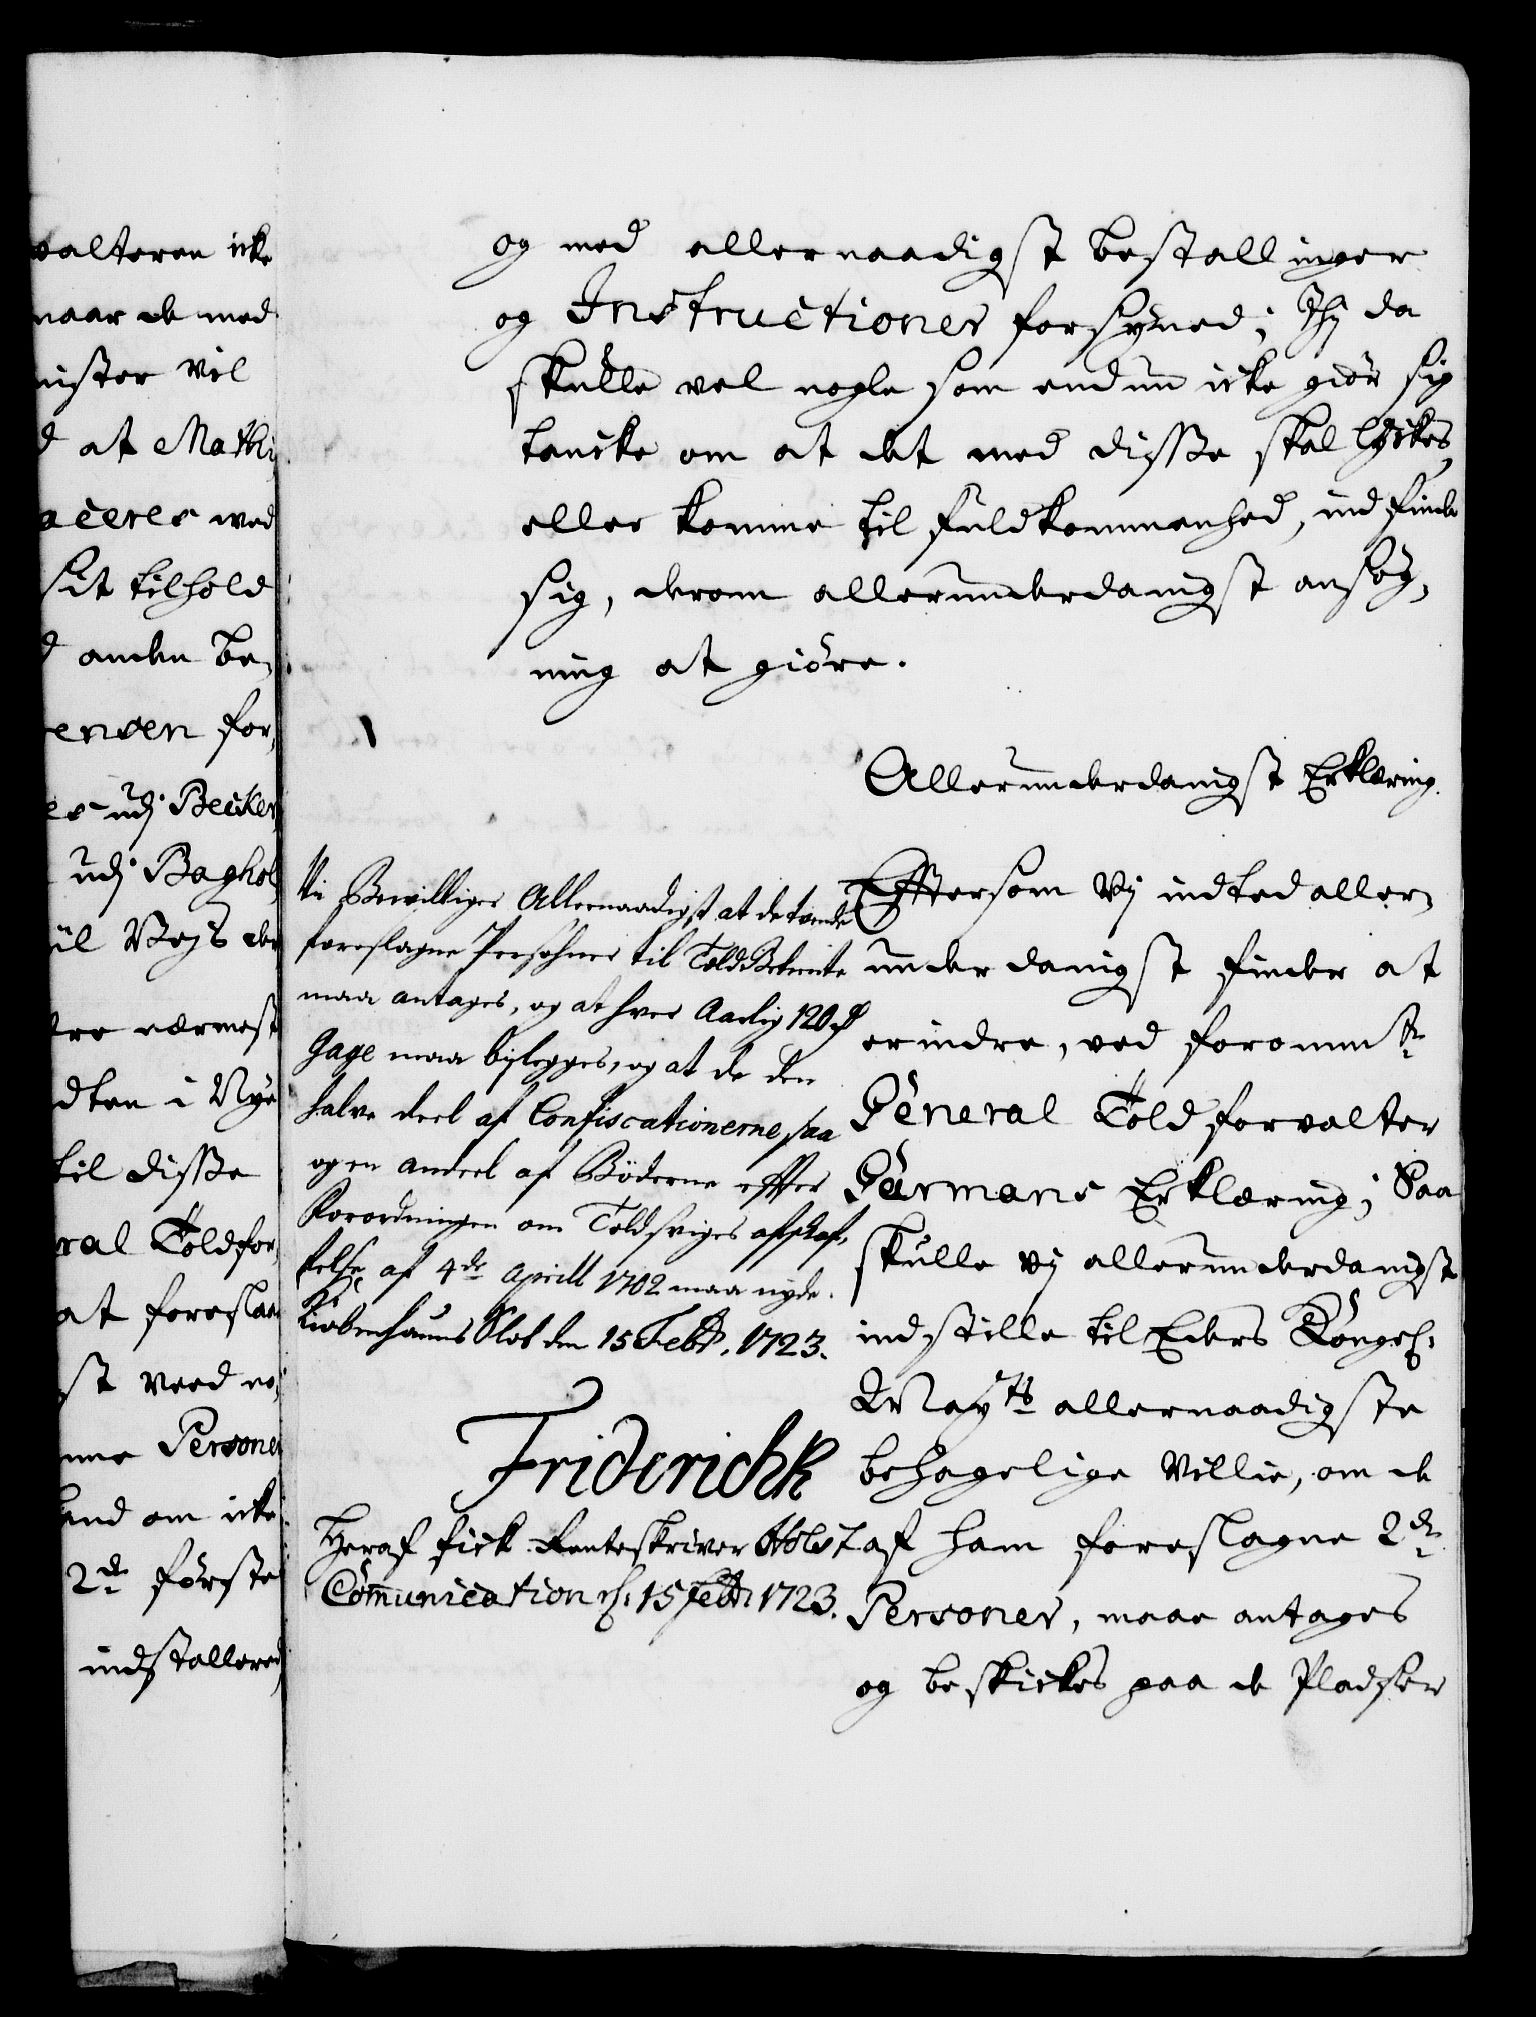 valteren icke
naar de med
nister vil
d at Mathi
aceres med
sit tilhold
d anden be-
ensen for,
es udj Becker
udj Baghol
til Vejs der
tre nærmest
dten i Nye
til disse
ral Toldfor,
at foreslaa
st veed no,
nne Persone
and om icke
2de første
indstallered
og med allernaadigst bestallinger
og Instructioner forsyned; Thj da
skulle vel nogle som endnu icke giør sig
tancke om at det med disse skal lyckes,
eller komme til fuldkommenhed, indfinde
sig, derom allerunderdanigst ansøg,
ning at giøre.
Allerunderdanigst Erklæring.
Eftersom Vj indted aller,
underdanigst finder at
erindre, ved foromte
General Toldforvalter
Gürmans Erklæring; Saa
skulle vj allerunderdanigst
indstille til Eders Kongel:
Mayts allernaadigste
behagelige Villie, om de
af ham foreslagne 2de
Personer, maae antages
og beskickes paa de Pladser
Vi Bewilliger Allernaadigst at de tvende
foreslagne Persohner til ToldBetiente
maa antages, og at hver Aarlig 120 rdr
Gage maa bylegges, og at de den
halve deel af Confiscationerne, saa
og en andeel af Bøderne efter
Forordningen om Toldsviges afskaf,
felse af 4de Aprill 1702 maa nyde.
Kiøbenhauns Slot den 15 Febr. 1723.
Friderich R
Heraf fick Renteskriver Holst
Communication d: 15 Febr: 1723.